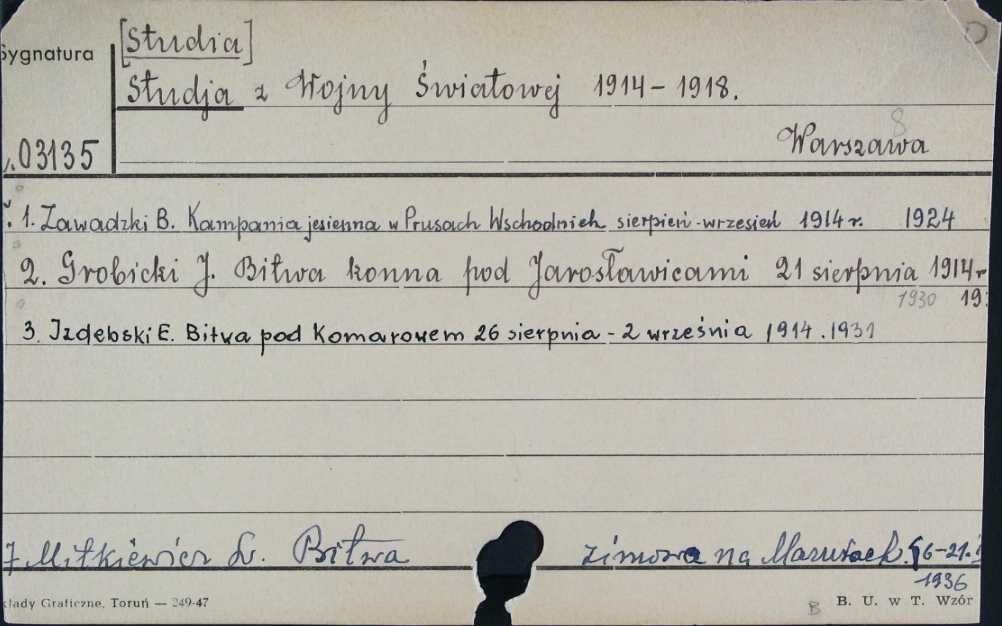 [Studia]
Sygnatura
Studja z Wojny Światowej 1914-1918.
8
Warszawa
03135
1. Zawadzki B. Kampania jesienna w Prusach Wschodnich sierpień-wrzesień 1914 r. 1924
2. Grobicki J. Bitwa konna pod Jarosławicami 21 sierpnia 1914 r
1930 193
3. Izdebski E. Bitwa pod Komarowem 26 sierpnia - 2 września 1914. 1931
7 Mitkiewicz L. Bitwa zimowa na Mazurach. 6-21.
1936
kłady Graficzne, Toruń — 249-47
B B. U. w T. Wzór